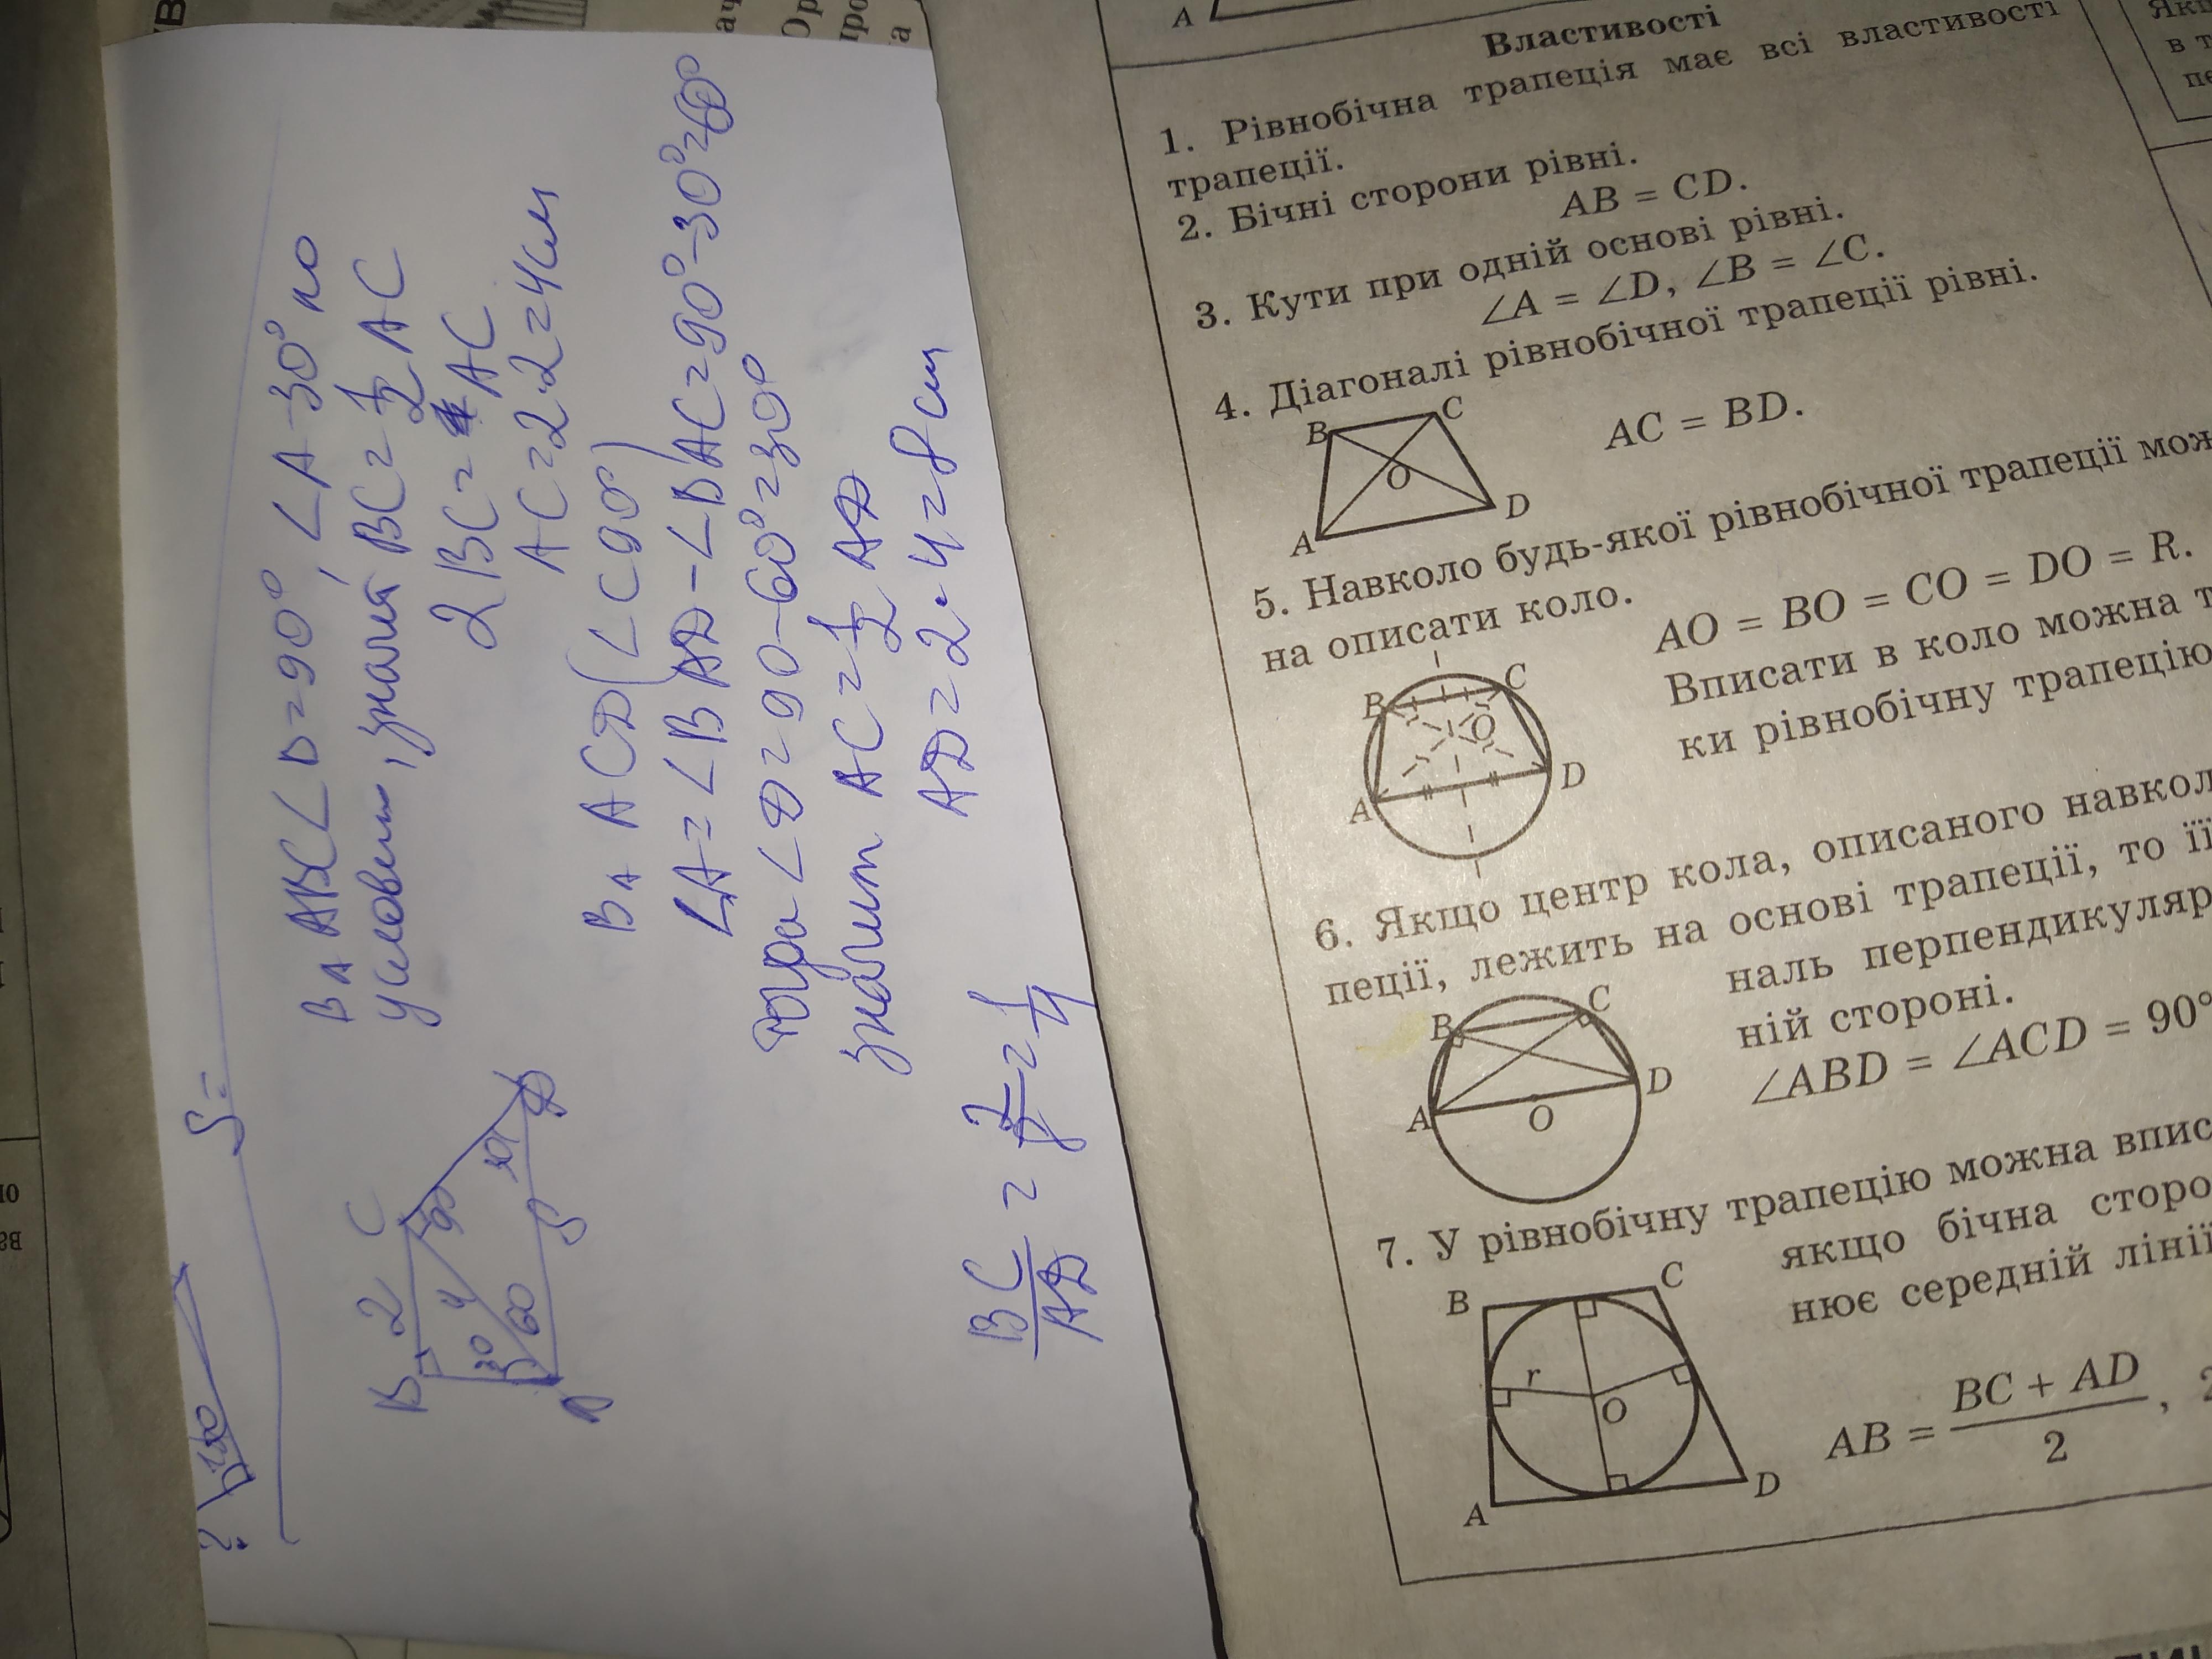 S-
В Δ ABC ∠B=90°, ∠A-30° по
условии, значит BC=1/2 AC
2BC=AC
AC=2·2=4см
В Δ ACD(∠C90°)
∠A=∠BAD-∠BAC=90°-30°=60°
тогда ∠D=90-60°=30°
значит AC=1/2 AD
AD=2·4=8см
BC/AD=2/8=1/4
B 2 C
4
90
30
60
A
D
A
Властивості
1. Рівнобічна трапеція має всі властивості
трапеції.
2. Бічні сторони рівні.
AB = CD.
3. Кути при одній основі рівні.
∠A = ∠D, ∠B = ∠C.
4. Діагоналі рівнобічної трапеції рівні.
B C
O
A D
AC = BD.
5. Навколо будь-якої рівнобічної трапеції мож
на описати коло.
AO = BO = CO = DO = R.
Вписати в коло можна т
ки рівнобічну трапецію
B C
O
A D
6. Якщо центр кола, описаного навкол
пеції, лежить на основі трапеції, то її
наль перпендикуляр
ній стороні.
∠ABD = ∠ACD = 90°
B C
A O D
7. У рівнобічну трапецію можна впис
якщо бічна сторо
нює середній лінії
B C
r
O
A D
AB = BC + AD / 2 , 2